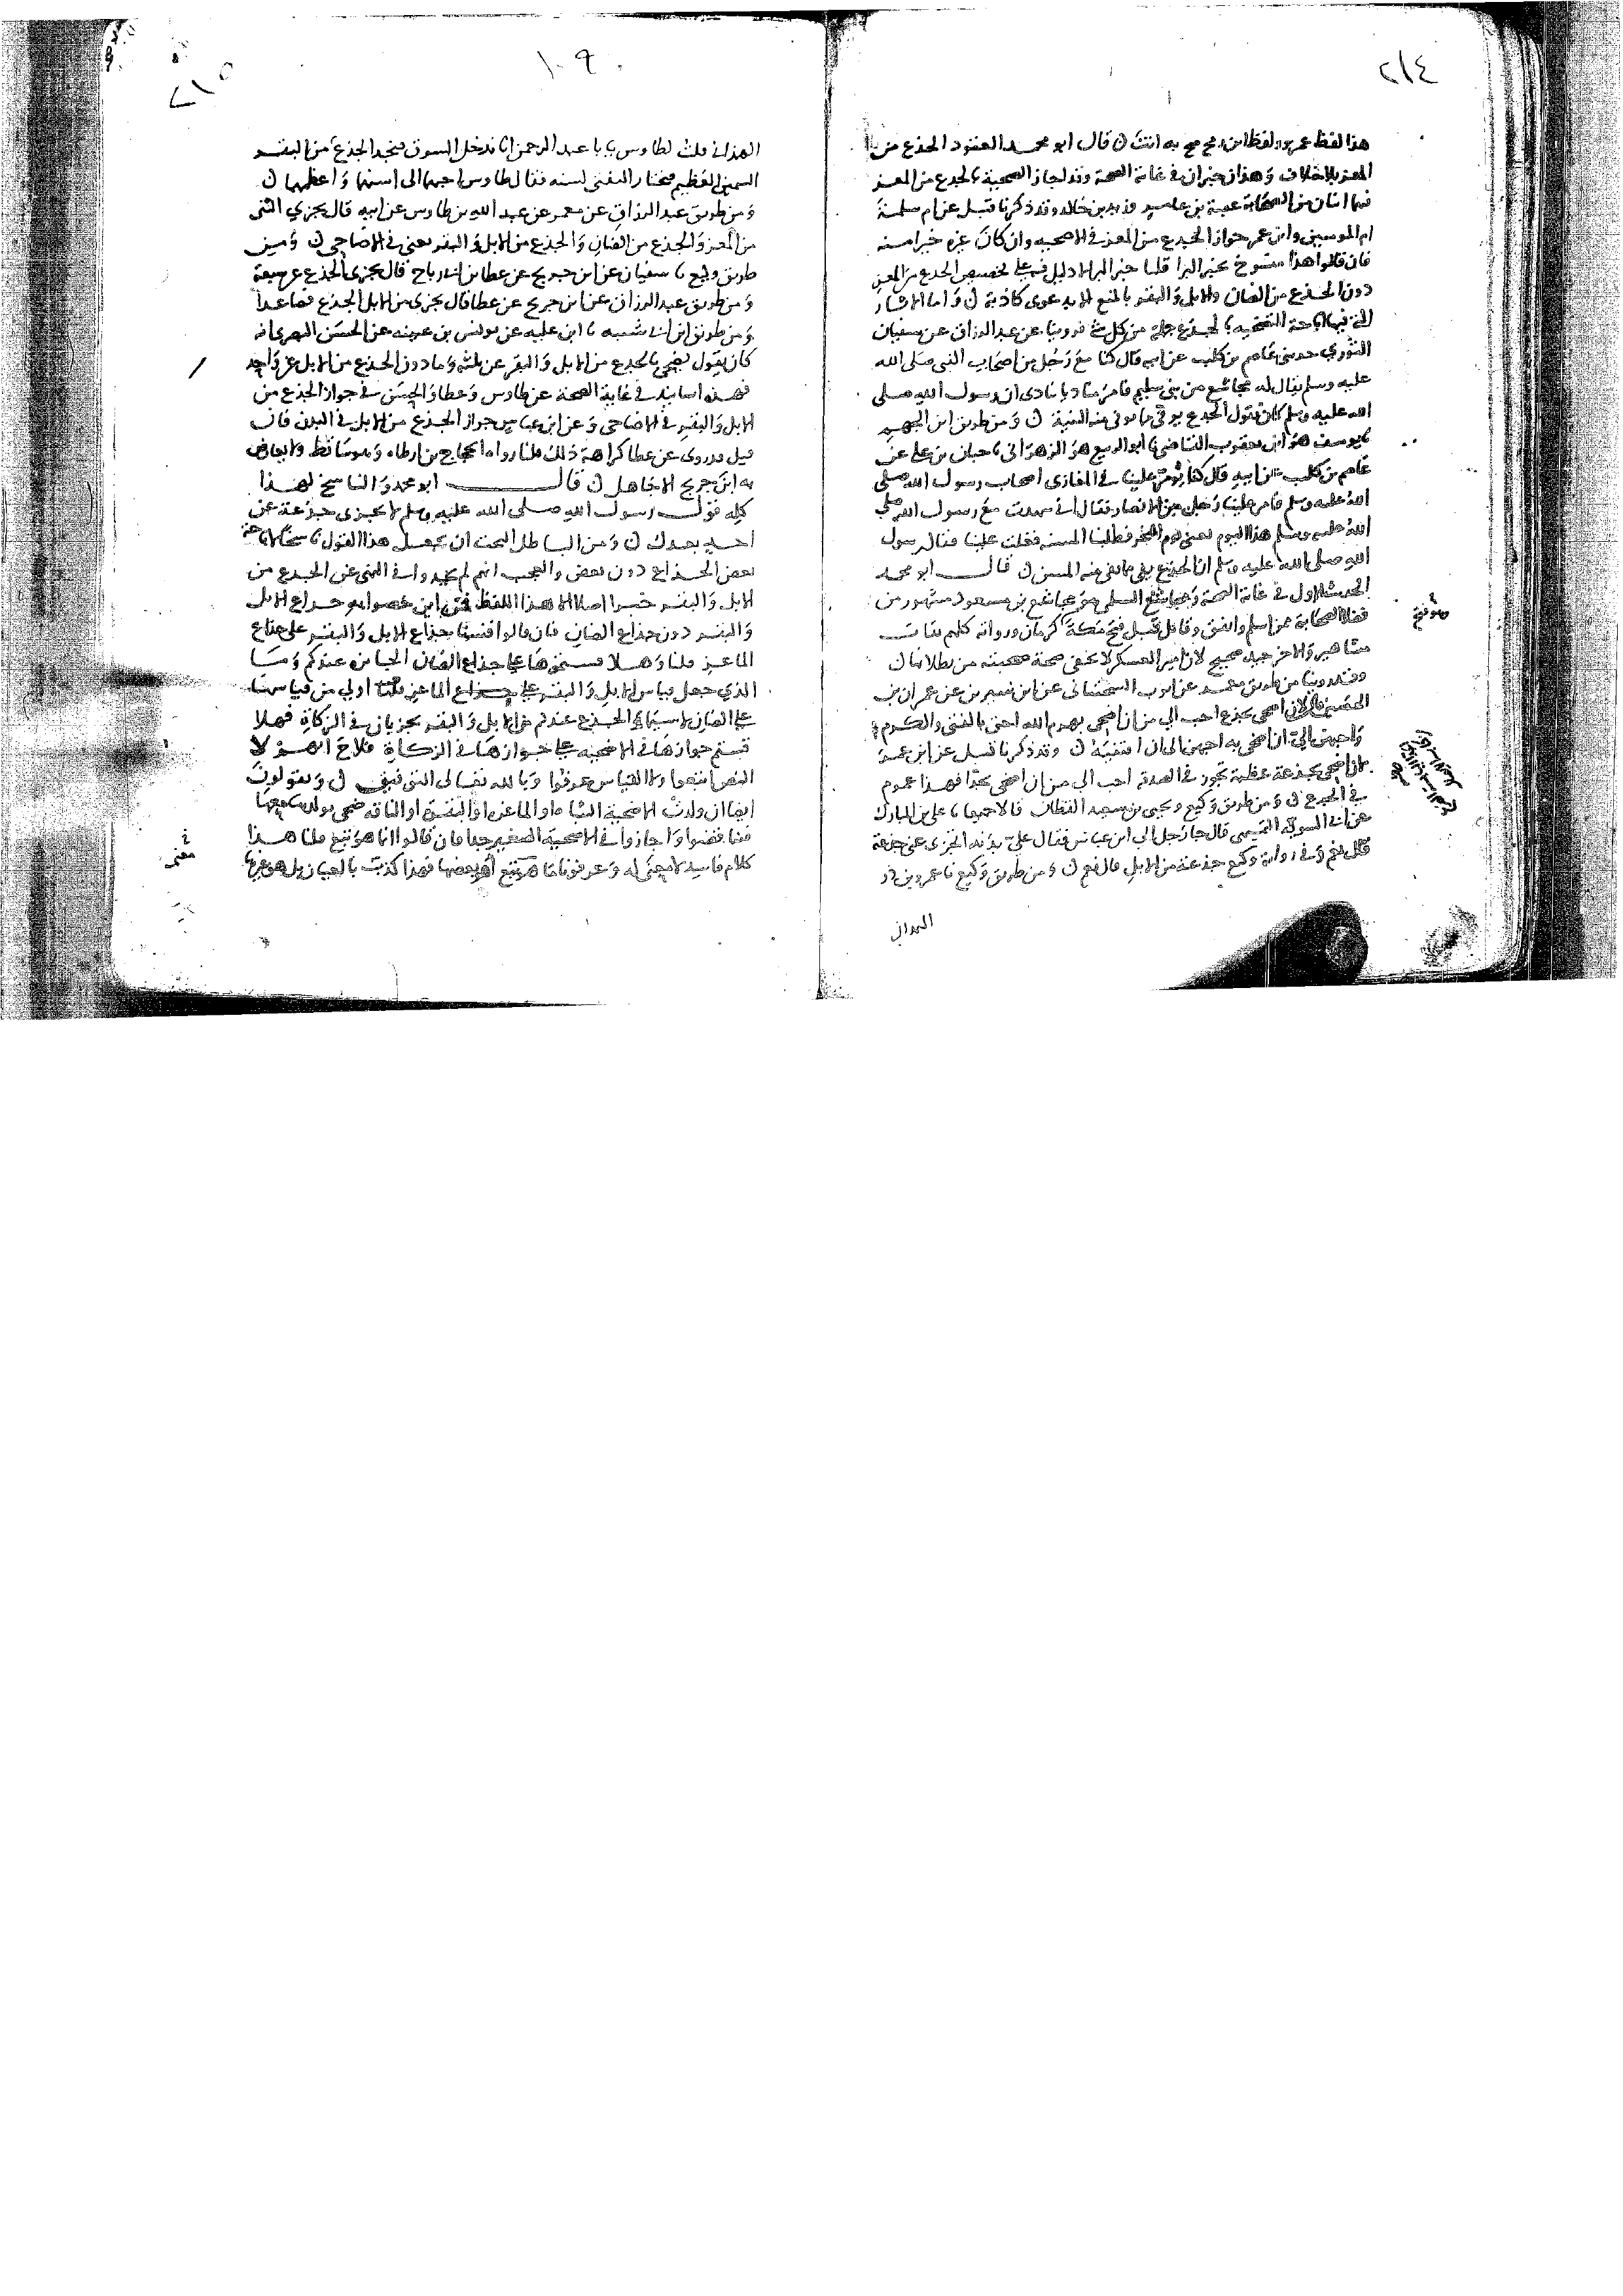 ٢١٤
هذا لفظ عمرو ولفظ ابن رمح ضح به انت قال ابو محمد العتود الجذع من
المعز بلا خلاف وهذان خبران في غاية الصحة وقد اجاز التضحية بالجذع من المعز
فيها اثنان من الصحابة عقبة بن عامر وزيد بن خالد وقد ذكرنا قبل عن ام سلمة
ام المومنين وابن عمر جواز الجذع من المعز في الاضحيه وان كان غيره خيرا منه
فان قالوا هذا منسوخ بخبر البرا قلنا خبر البرا لا دليل فيه على تخصيص الجذع من المعز
دون الجذع من الضان والابل والبقر بالمنع الا بدعوى كاذبة واما الاثار
التي فيها اباحة التضحيه بالجذع جملة من كل شي فروينا عن عبد الرزاق عن سفيان
الثوري حدثني عاصم بن كليب عن ابيه قال كنا مع رجل من اصحاب النبي صلى الله
عليه وسلم يقال له مجاشع من بني سليم فامر مناديا ينادي ان رسول الله صلى
الله عليه وسلم كان يقول الجذع يوفي ما توفي منه الثنية ومن طريق ابن الجهم
نا يوسف هو ابن يعقوب القاضي نا ابو الربيع هو الزهراني نا حبان بن علي عن
عاصم بن كليب عن ابيه قال كنا يومر علينا في المغازي اصحاب رسول الله صلى
الله عليه وسلم فامر علينا رجل من الانصار فقال اني شهدت مع رسول الله صلى
الله عليه وسلم هذا اليوم يعني يوم النحر فطلبنا المسنه فغلت علينا فقال رسول
الله صلى الله عليه وسلم ان الجذع يفي مما يفي منه المسن قال ابو محمد
الحديث الاول في غاية الصحة ومجاشع السلمي هو مجاشع بن مسعود مشهور من
فضلا الصحابة ممن اسلم وانفق وقاتل قبل فتح مكة كرمان ورواته كلهم ثقات
مشاهير والاخر جيد صحيح لان امير العسكر لا تخفى صحة صحبته من بطلانها
وقد روينا من طريق معمر عن ايوب السختياني عن ابن سيرين عن عمران بن
الحصين قال لان اضحي بجذع احب الي من ان اضحي بهرم الله احق بالغنى والكرم
واحبهن الي ان اضحي به احبهن الي ان اقتنيه وقد ذكرنا قبل عن ابن عمر
لان اضحي بجذعة عظيمة تجوز في الصدقه احب الي من ان اضحي بجذا فهذا عموم
في الجذع ومن طريق وكيع ويحيى بن سعيد القطان قالا جميعا نا علي بن المبارك
عن ابي السويه التميمي قال جا رجل الي ابن عباس فقال علي بدنه اتجزي عني جذعة
قال نعم وفي رواية وكيع جذعة من الابل قال نعم ومن طريق وكيع نا عمرو بن ذر
الهمداني
٢١٥
١٠٩
الهمداني قلت لطاوس يا با عبد الرحمن انا ندخل السوق فنجد الجذع من البقر
السمين العظيم فنختار الثني لسنه فقال طاوس احبها الي اسمنها واعظمها
ومن طريق عبد الرزاق عن معمر عن عبد الله بن طاوس عن ابيه قال يجزي الثني
من المعز والجذع من الضان والجذع من الابل والبقر يعني في الاضاحي ومن
طريق وكيع نا سفيان عن ابن جريج عن عطا بن ابي رباح قال يجزي الجذع عن سبعة
ومن طريق عبد الرزاق عن ابن جريج عن عطا قال يجزى من الابل الجذع فصاعدا
ومن طريق ابن ابي شيبه نا ابن عليه عن يونس بن عبيد عن الحسن البصري انه
كان يقول يضحي بالجذع من الابل والبقر عن ثلثه وما دون الجذع من الابل عن واحد
فهذه اسانيد في غاية الصحة عن طاوس وعطا والحسن في جواز الجذع من
الابل والبقر في الاضاحي وعن ابن عباس جواز الجذع من الابل في البدن فان
قيل قد روى عن عطا كراهة ذلك قلنا رواه الحجاج بن ارطاه وهو ساقط ولا يعارض
به ابن جريج الا جاهل قال ابو محمد والناسخ لهذا
كله قول رسول الله صلى الله عليه وسلم لا تجزي جذعة عن
احد بعدك ومن الباطل البحت ان يجعل هذا القول ناسخا لاباحة
بعض الجذاع دون بعض والعجب انهم لم يجدوا في النهي عن الجذع من
الابل والبقر خبرا اصلا الا هذا اللفظ فمن اين خصوا به جذاع الابل
والبقر دون جذاع الضان فان قالوا قسنا جذاع الابل والبقر على جذاع
الماعز قلنا وهلا قستموها على جذاع الضان الجايز عندكم وما
الذي جعل قياس الابل والبقر على جذاع الماعز اولي من قياسها
على الضان لا سيما والجذع عندكم من الابل والبقر يجزيان في الزكاة فهلا
قستم جوازها في الاضحيه على جوازها في الزكاة فلاح انهم لا
النص اتبعوا ولا القياس عرفوا وبالله تعالى التوفيق ويقولون
ايضا ان ولدت الاضحية الشاه او الماعزه او البقرة او الناقه ضحي بولدها معها
فنا قضوا واجازوا في الاضحية الصغير جدا فان قالوا انما هو تبع قلنا هذا
كلام فاسد لا معنى له وعرفونا ما هو تبع اهو بعضها فهذا كذب بالعيان بل هو غيرها